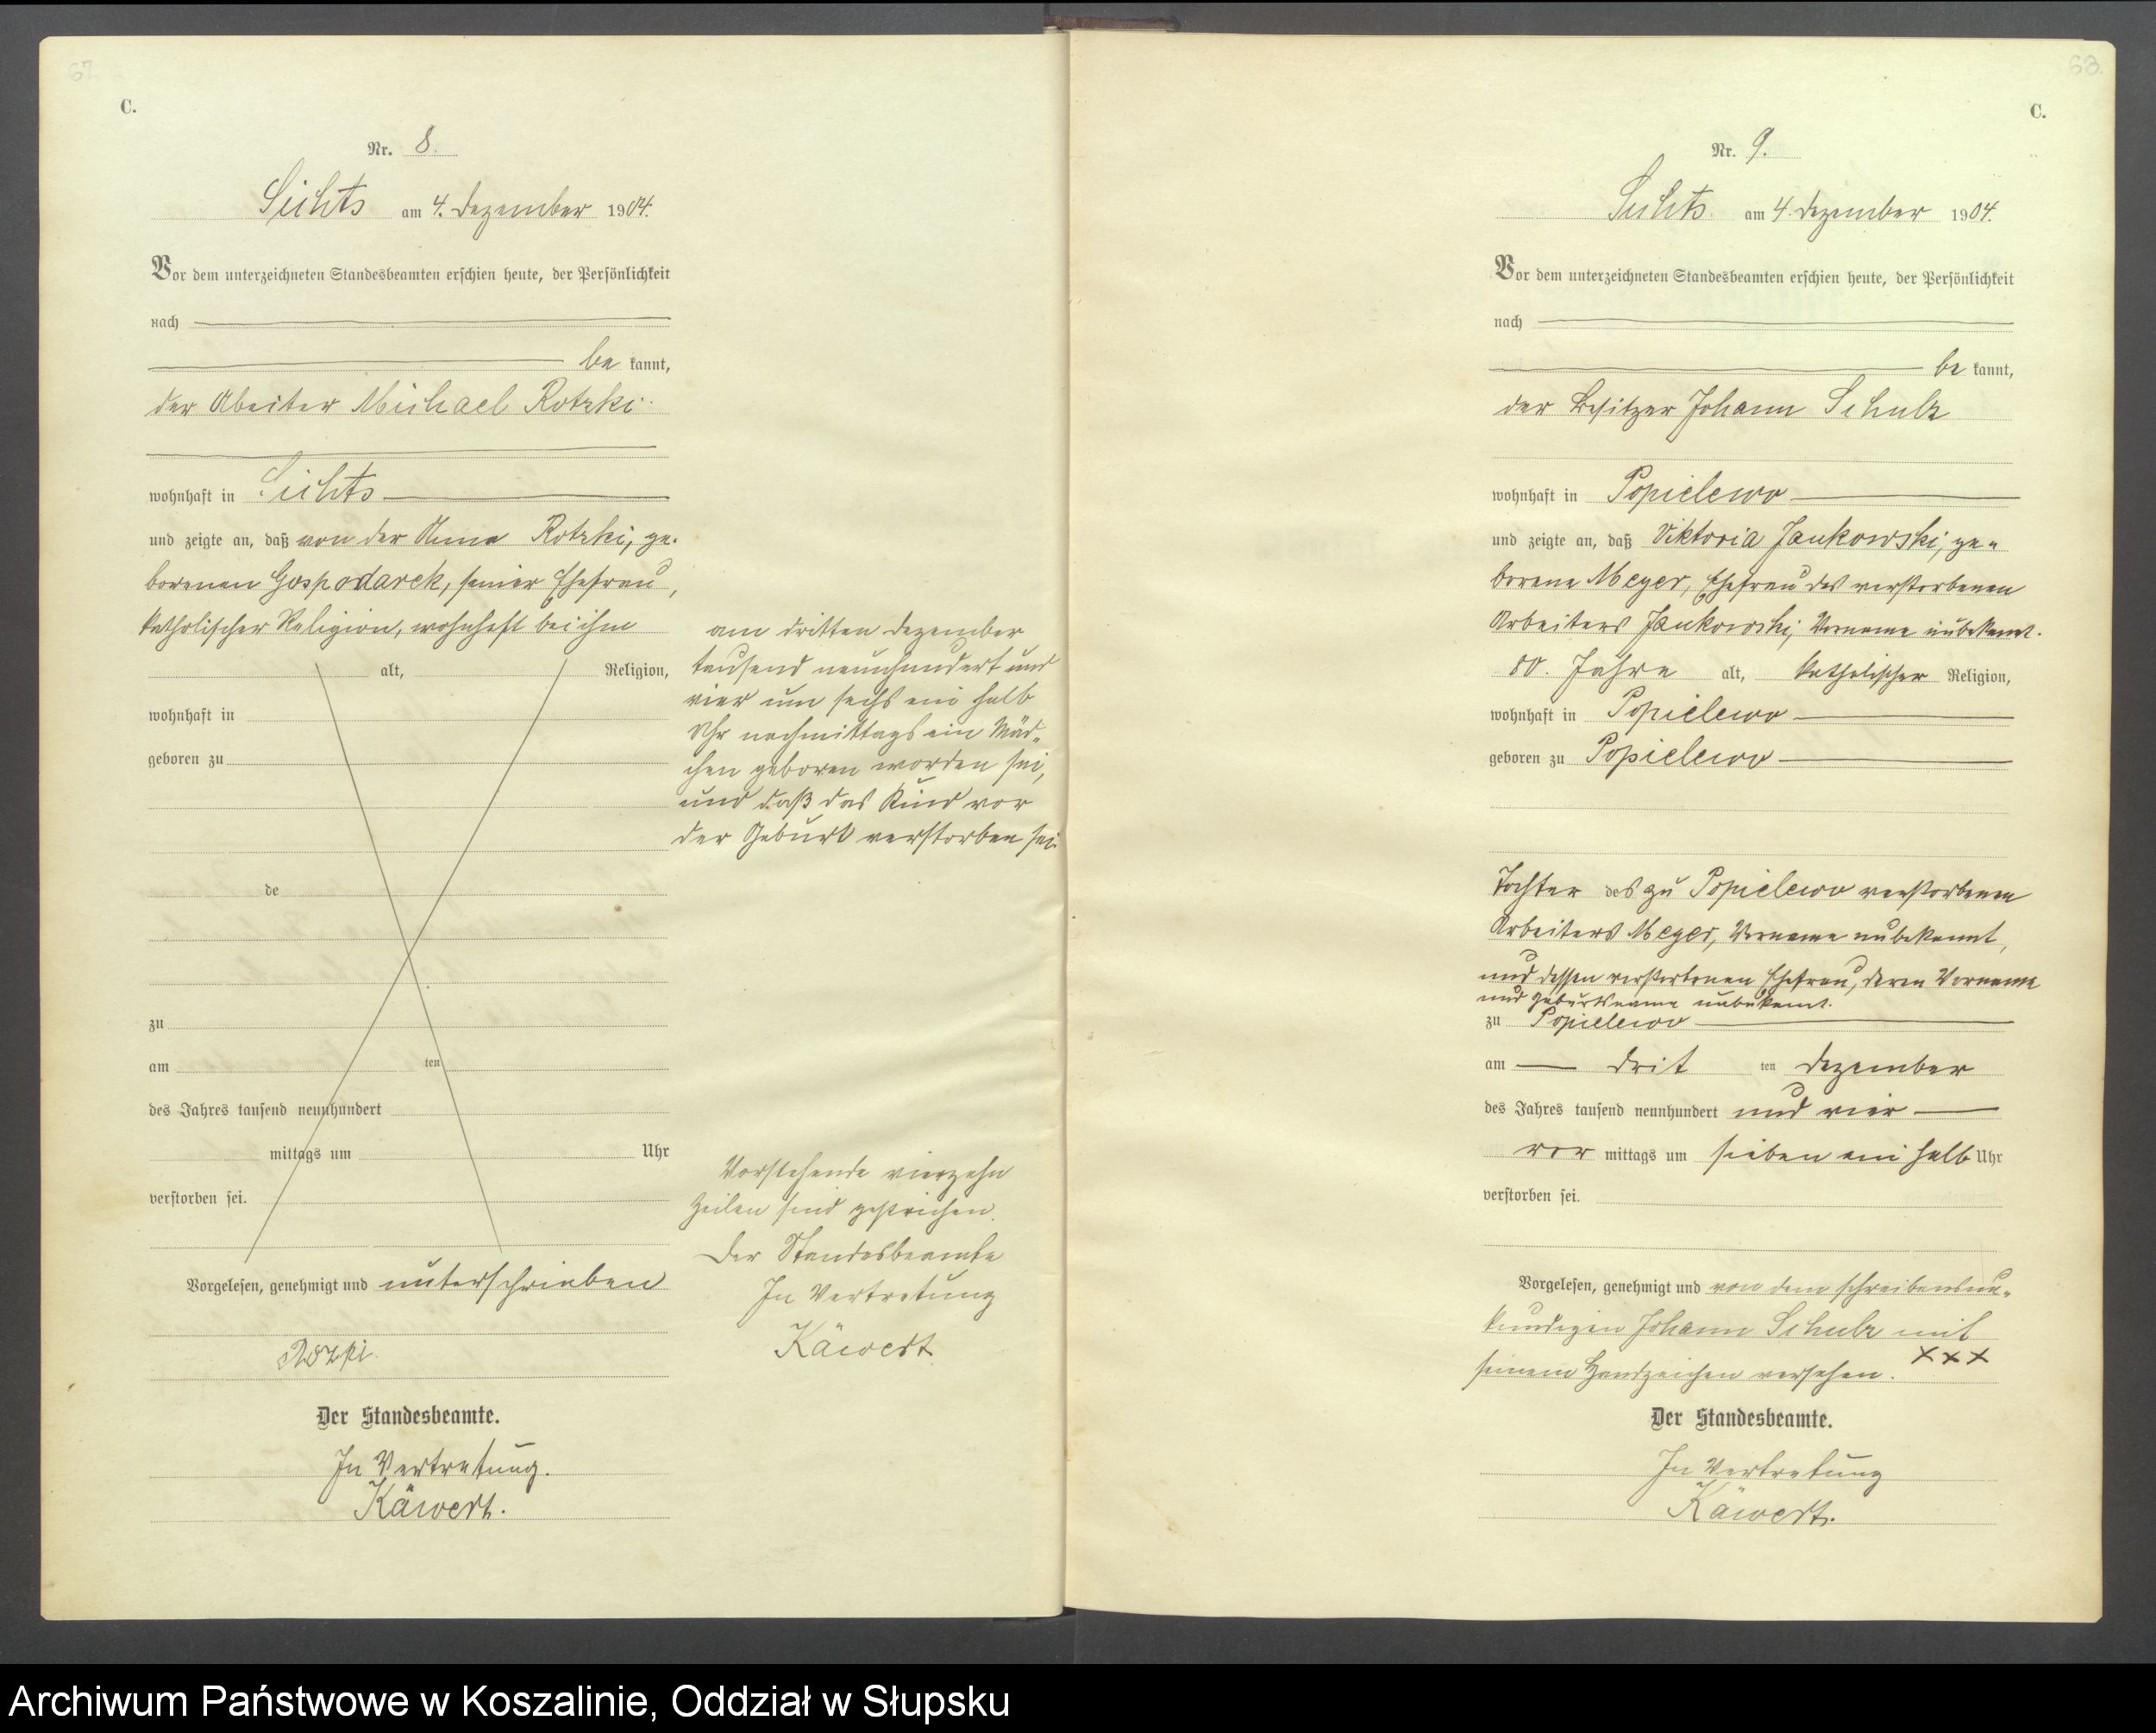 67.
C.
Nr. 8.
Sichts am 4. Dezember 1904.
Vor dem unterzeichneten Standesbeamten erschien heute, der Persönlichkeit
nach
be kannt,
der Abeiter Michael Rotzki
wohnhaft in Sichts
und zeigte an, daß von der Anna Rotzki, ge-
borenen Gospodarek, seiner Ehefrau,
katholischer Religion, wohnhaft bei ihm
alt, Religion,
wohnhaft in
geboren zu
de
zu
am ten
des Jahres tausend neunhundert
mittags um Uhr
verstorben sei.
Vorgelesen, genehmigt und unterschrieben
Der Standesbeamte.
In Vertretung.
Käwert.
am dritten Dezember
tausend neunhundert und
vier um sechs ein halb
Uhr nachmittags ein Mäd-
chen geboren worden sei,
und daß das Kind vor
der Geburt verstorben sei.
Vorstehende vierzehn
Zeilen sind gestrichen.
Der Standesbeamte
In Vertretung
Käwert
68.
C.
Nr. 9.
Sichts am 4. Dezember 1904.
Vor dem unterzeichneten Standesbeamten erschien heute, der Persönlichkeit
nach
be kannt,
der Besitzer Johann Schulz
wohnhaft in Popielewo
und zeigte an, daß Viktoria Jankowski, ge-
borene Meyer, Ehefrau des verstorbenen
Arbeiters Jankowski, Vorname unbekannt.
80. Jahre alt, katholischer Religion,
wohnhaft in Popielewo
geboren zu Popielewo
Tochter des zu Popielewo verstorbenen
Arbeiters Meyer, Vorname unbekannt,
und dessen verstorbenen Ehefrau, deren Vorname
und Geburtsname unbekannt.
zu Popielewo
am drit ten Dezember
des Jahres tausend neunhundert und vier
vor mittags um sieben ein halb Uhr
verstorben sei.
Vorgelesen, genehmigt und von dem schreibensun-
kundigen Johann Schulz mit
seinem Handzeichen versehen. XXX
Der Standesbeamte.
In Vertretung
Käwert.
Archiwum Państwowe w Koszalinie, Oddział w Słupsku